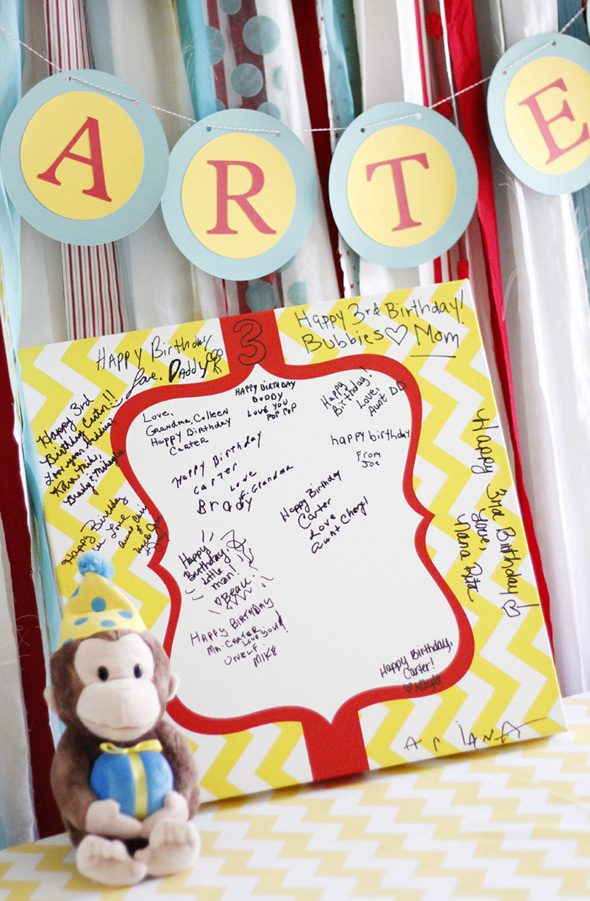 A R T E
3
Happy Birthday
Love, Daddy
Happy 3rd Birthday!
Bubbies♡ Mom
Happy 3rd
Birthday Carter!!
Love,
Happy Birthday
Love
Love,
Grandma, Colleen
Happy Birthday
Carter
Happy Birthday
Buddy
Love you
Pop Pop
Happy
Birthday!
Love,
Aunt DD
happy birthday
From
Joe
Happy Birthday
Carter
Love
Brody
Grandma
Happy Birthday
Carter
Love
Aunt Cheryl
Happy
Birthday
little
man!
Happy Birthday
Mr. Carter
Love you!
Uncle
Mike
Happy 3rd Birthday!
Love,
Nana Rita
Happy Birthday,
Carter!
Ariana